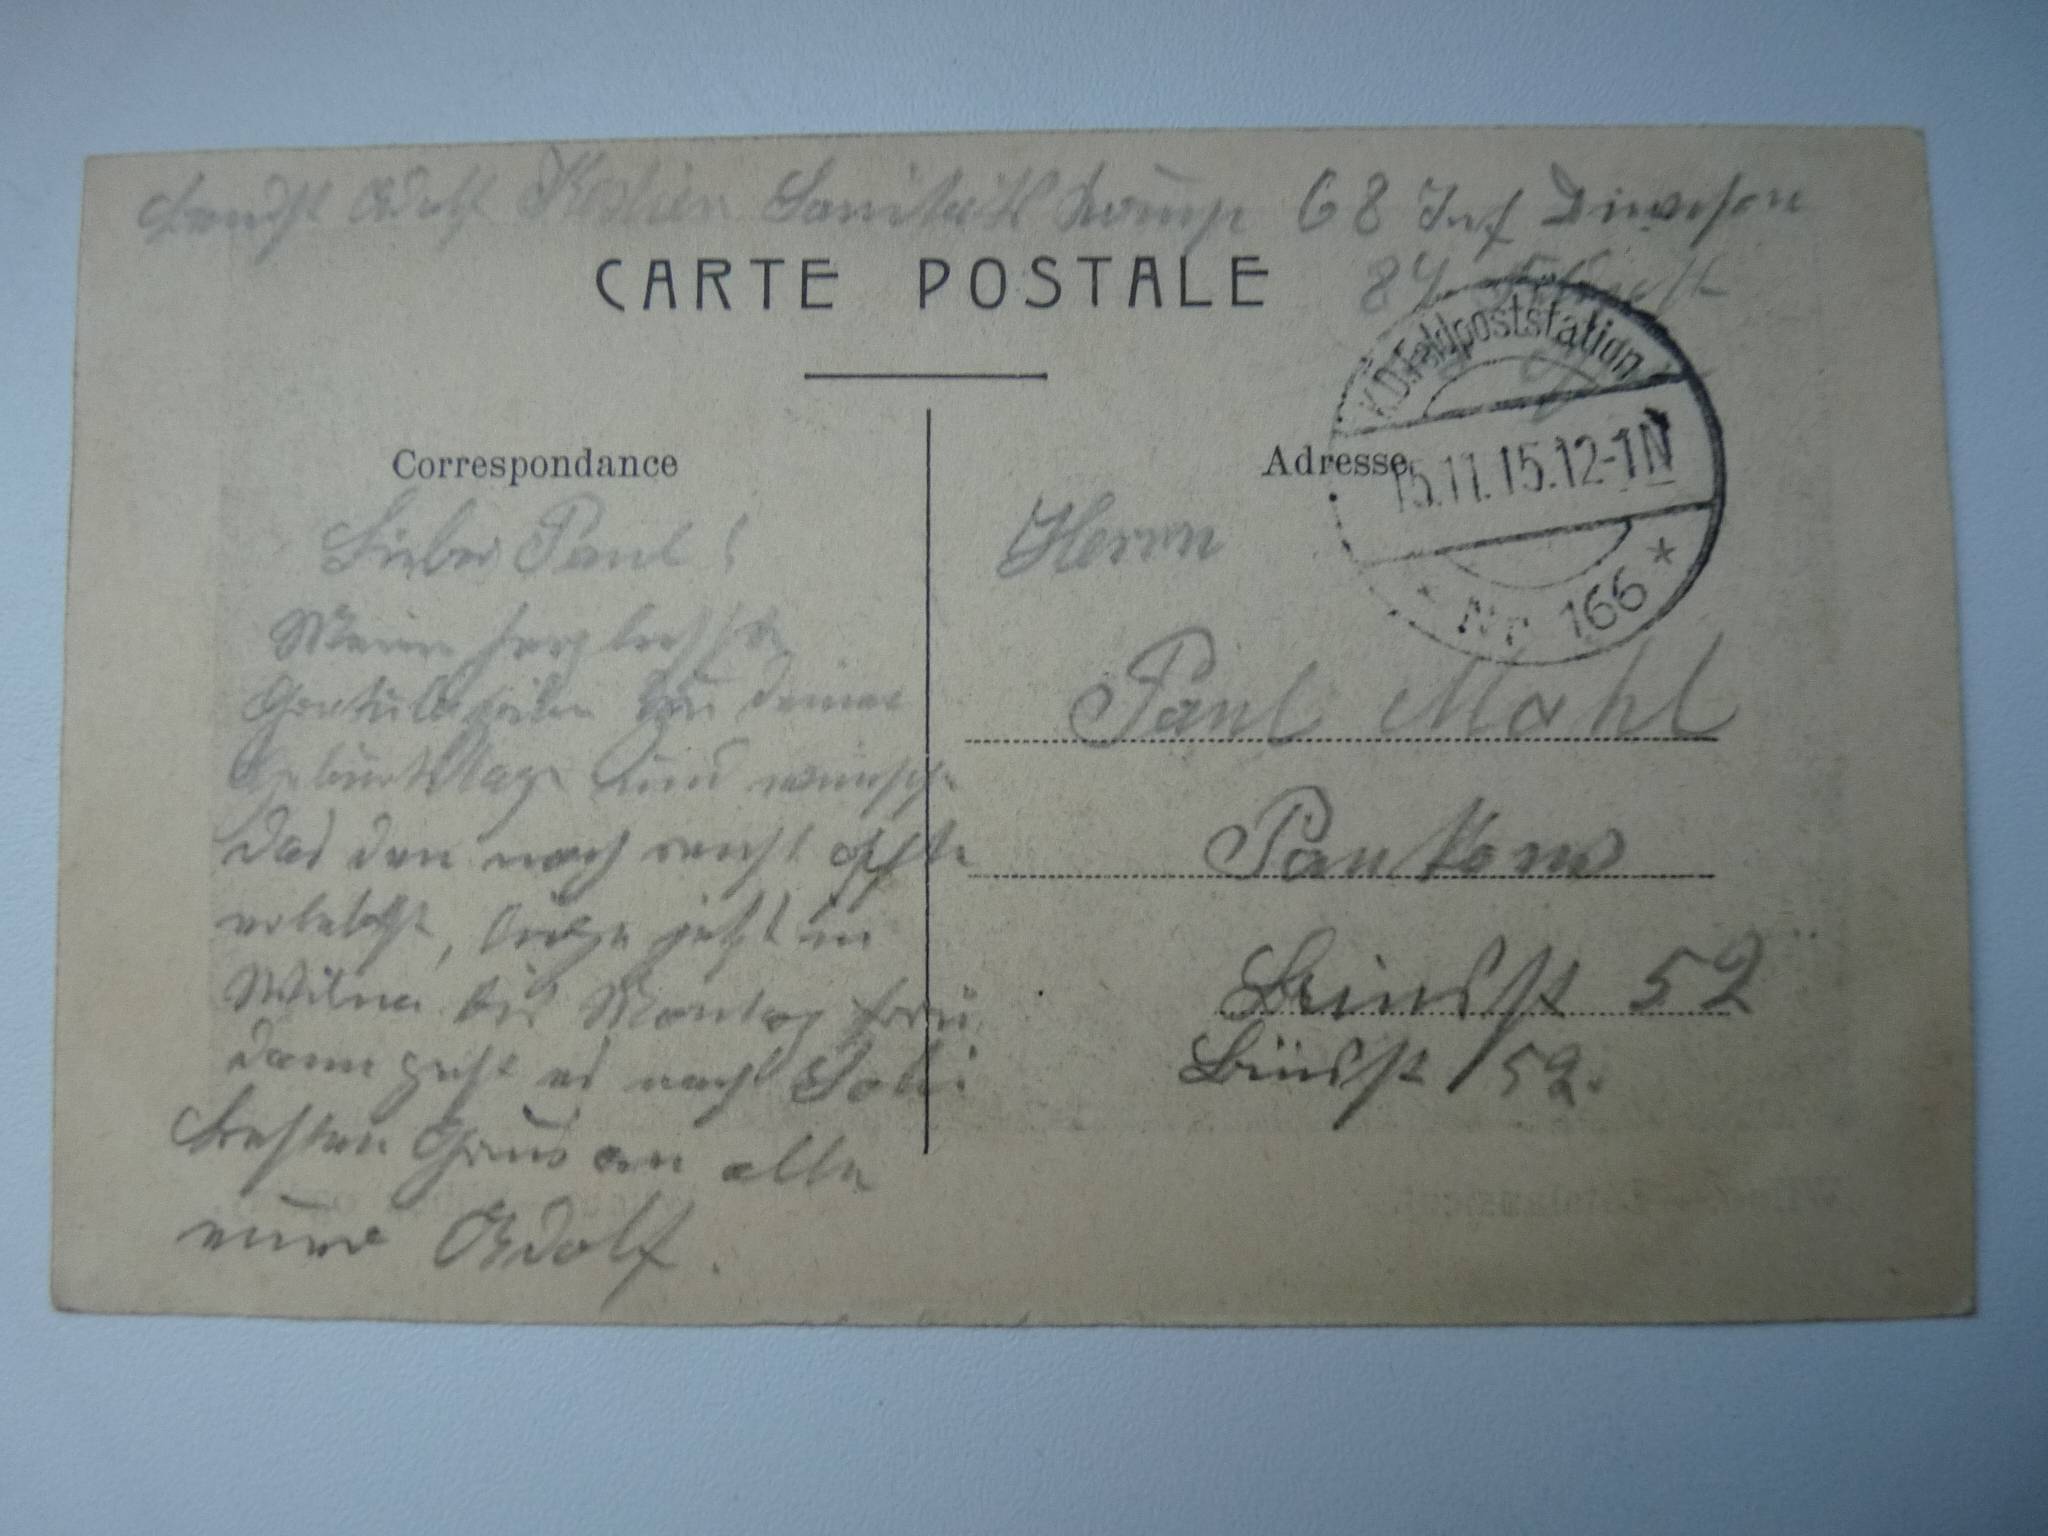 Landst Adolf Sanität Komp 68 Inf Diwision
84
CARTE POSTALE
K.D.Feldpoststation
15.11.15.12-1N
* Nr 166 *
Correspondance
Adresse
Lieber Paul!
Meine herzlichste
Gratulazion zu deine
Geburtstage und wünsche
das du noch recht ofte
erlebst, liege jetzt in
Wilna bis Montag frü
dann geht es nach
Besten Grus an alle
eure Adolf.
Herrn
Paul Mahl
Pankow
52
52.